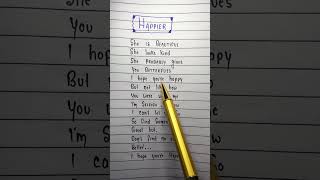 HAPPIER
SHE IS BEAUTIFUL
SHE LOOKS KIND
SHE PROBABLY GIVES
YOU BUTTERFLIES
I HOPE YOU'RE HAPPY
BUT NOT HOW
YOU WERE ME
I'M SELFISH
I CAN'T LET
SO FIND SOME
GREAT BUT
DON'T FIND NO
BETTER...
I HOPE YOU'RE HAPP